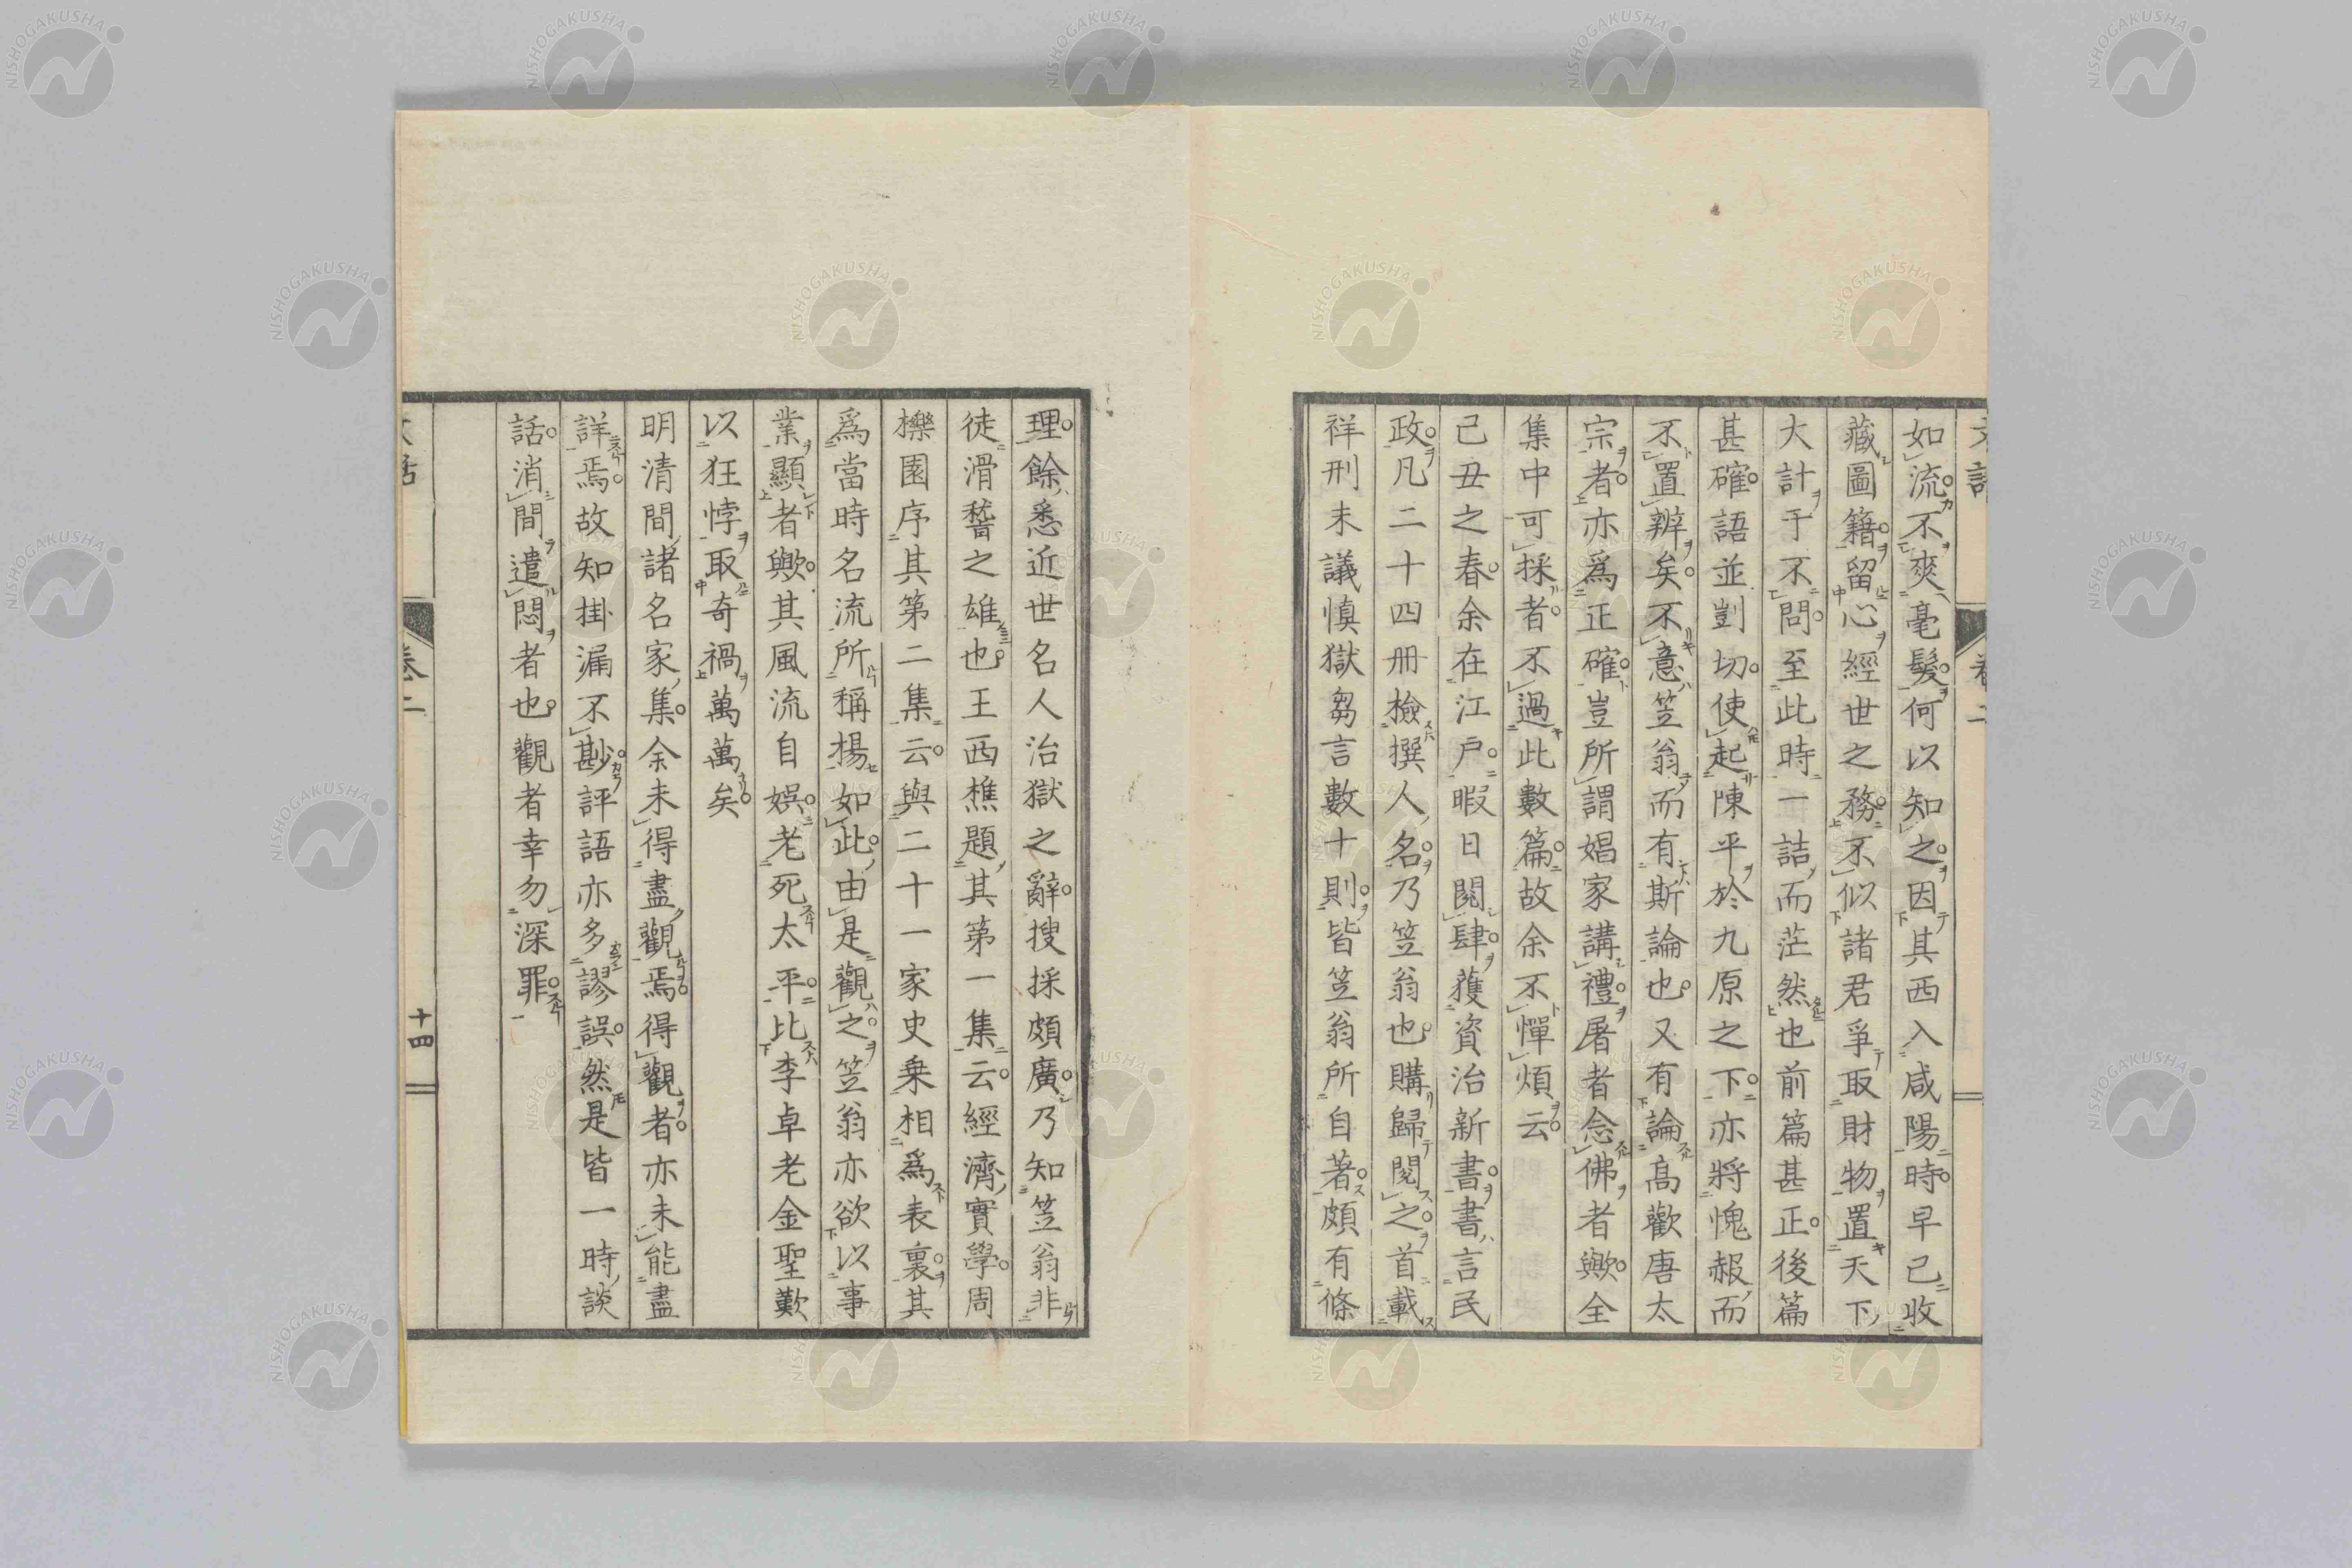 如流不爽毫髮何以知之因其西入咸陽時早已收
藏圖籍留心經世之務不似諸君爭取財物置天下
大計于不問至此時一詰而茫然也前篇甚正後篇
甚確語並剴切使起陳平於九原之下亦將愧赧而
不置辨矣不意笠翁而有斯論也又有論高歡唐太
宗者亦爲正確豈所謂娼家講禮屠者念佛者歟全
集中可採者不過此數篇故余不憚煩云
己丑之春余在江戸暇日閲肆獲資治新書書言民
政凡二十四册檢撰人名乃笠翁也購歸閲之首載
祥刑末議愼獄芻言數十則皆笠翁所自著頗有條
理餘悉近世名人治獄之辭搜採頗廣乃知笠翁非
徒滑稽之雄也王西樵題其第一集云經濟實學周
櫟園序其第二集云與二十一家史乗相爲表裏其
爲當時名流所稱揚如此由是觀之笠翁亦欲以事
業顯者歟其風流自娯老死太平比李卓老金聖歎
以狂悖取奇禍萬萬矣
明清間諸名家集余未得盡觀焉得觀者亦未能盡
詳焉故知掛漏不尠評語亦多謬誤然是皆一時談
話消間遣悶者也觀者幸勿深罪
卷二
十四
NISHOGAKUSHA